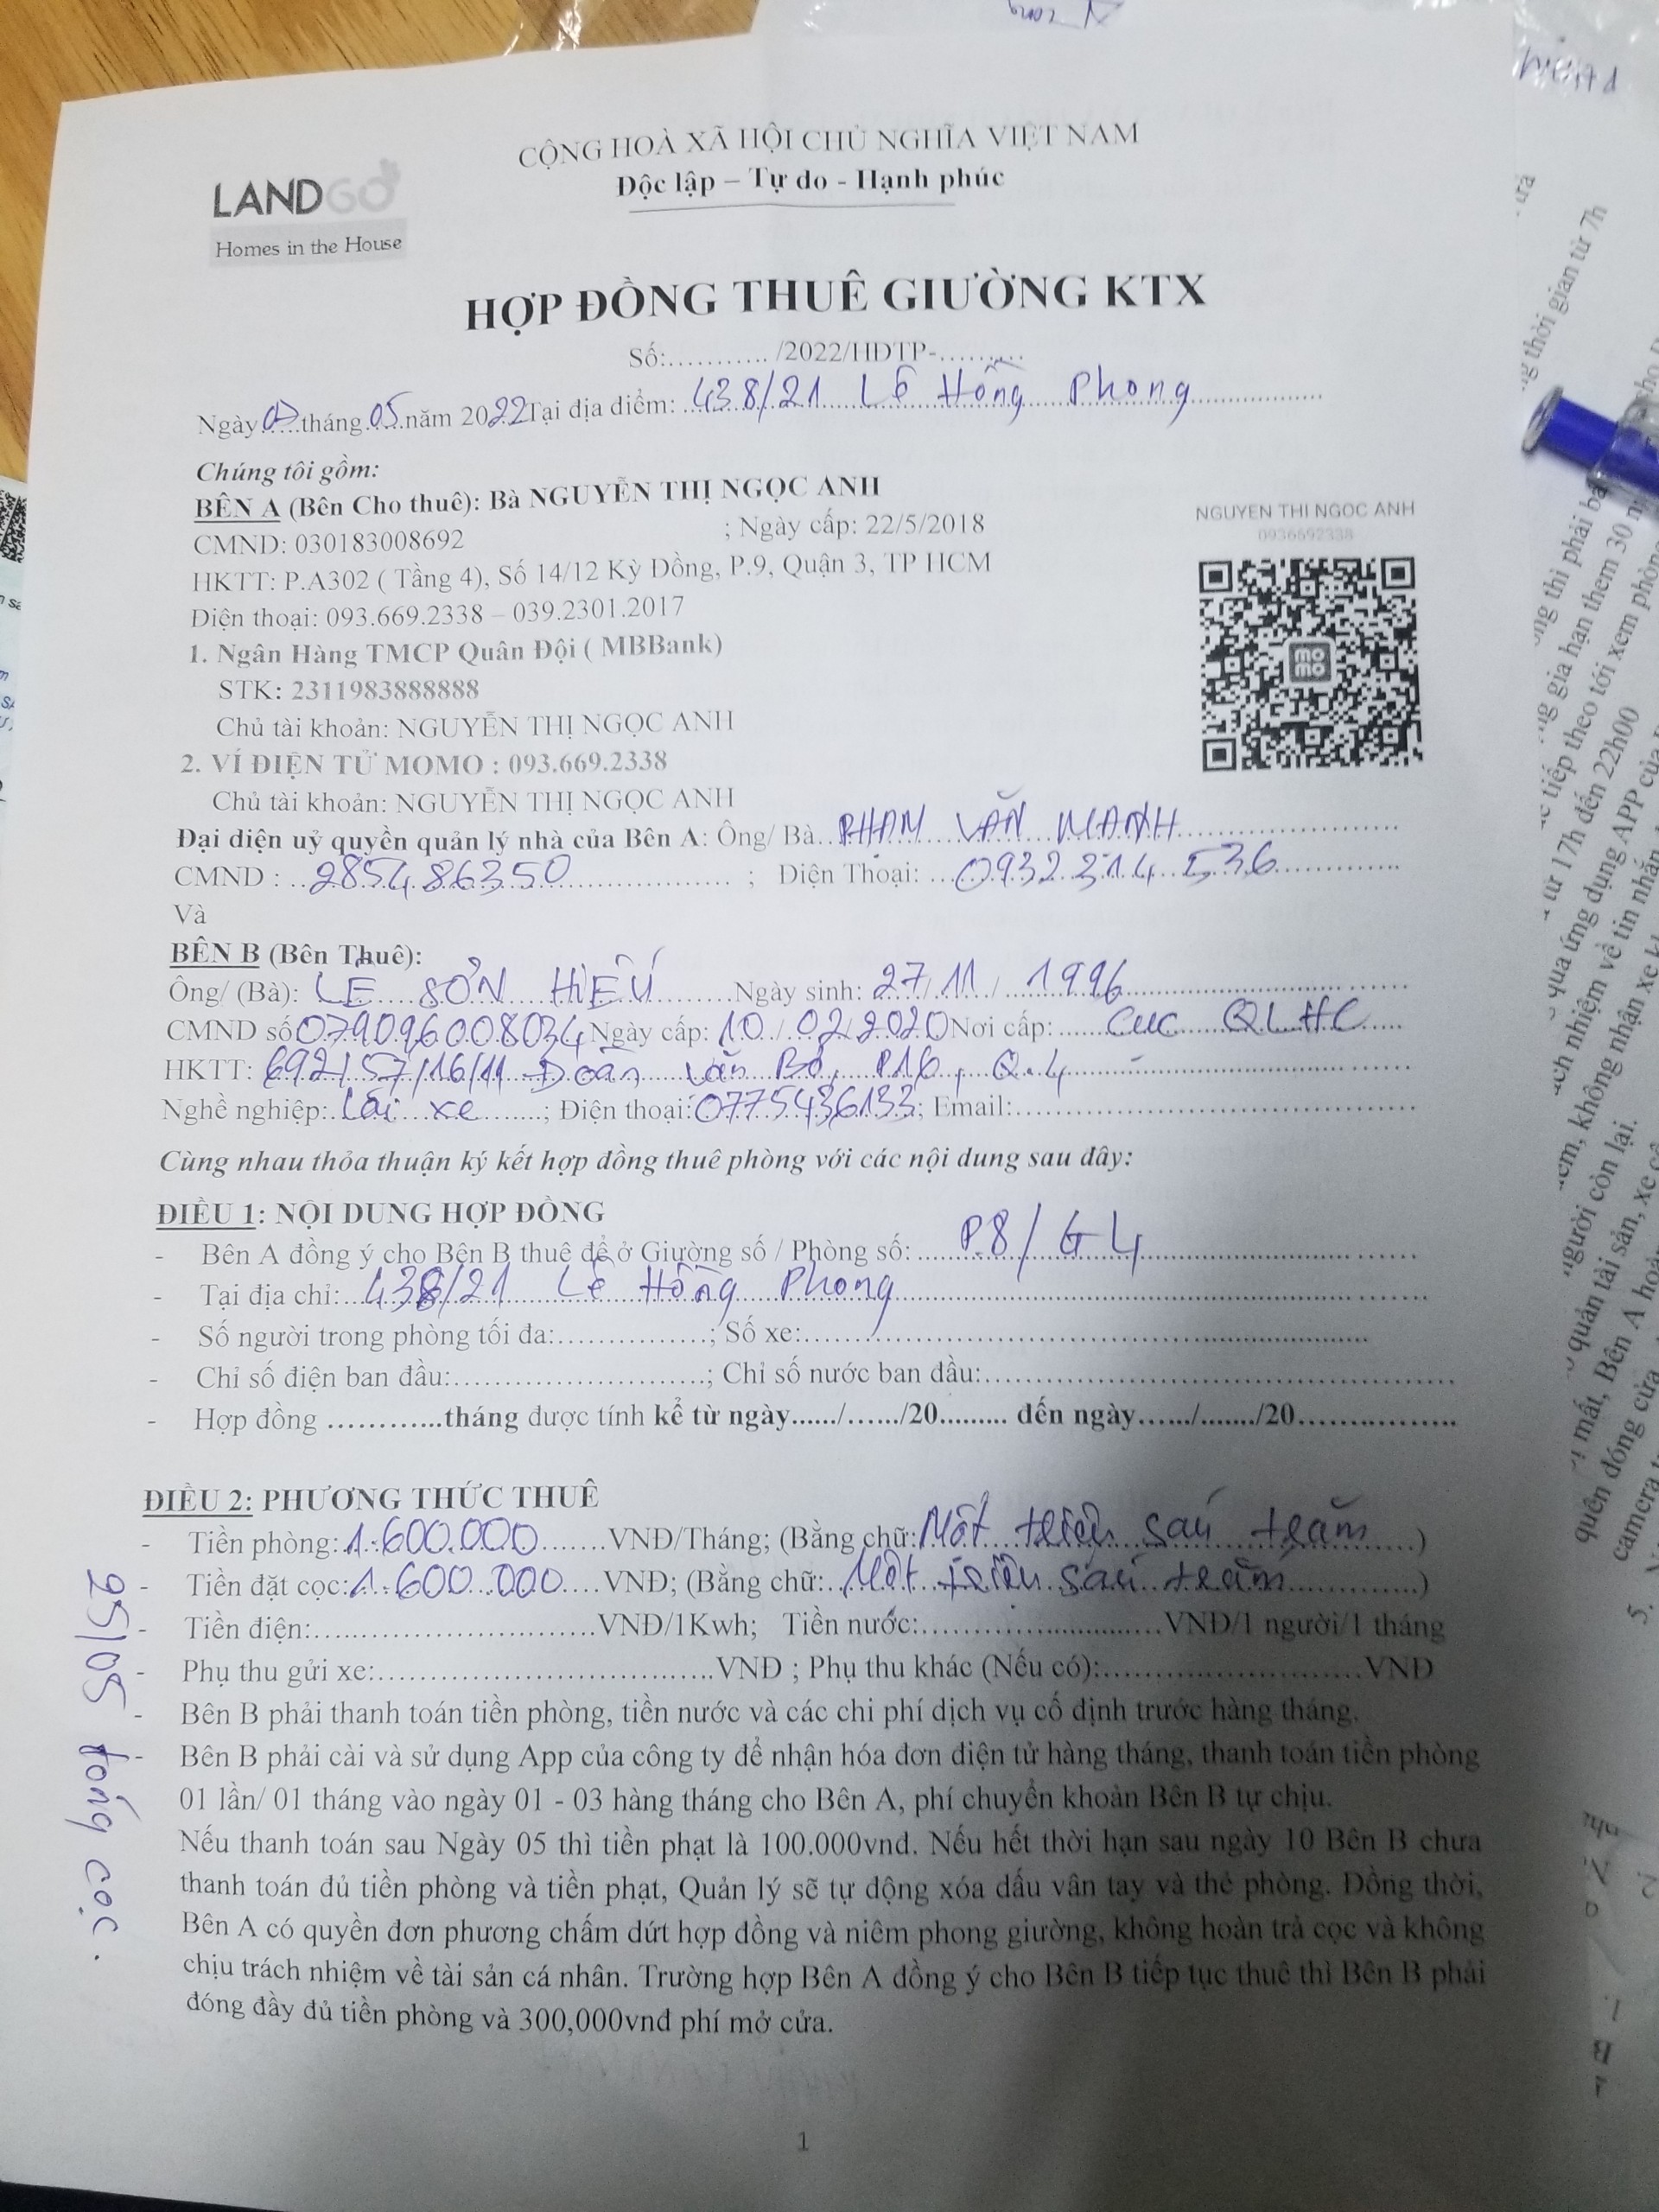 CỘNG HOÀ XÃ HỘI CHỦ NGHĨA VIỆT NAM
Độc lập – Tự do - Hạnh phúc
LANDGO
Homes in the House
HỢP ĐỒNG THUÊ GIƯỜNG KTX
Số:........... /2022/HĐTP-.........
Ngày.....tháng 05 năm 2022 Tại địa điểm: 438/21 Lê Hồng Phong
Chúng tôi gồm:
BÊN A (Bên Cho thuê): Bà NGUYỄN THỊ NGỌC ANH
CMND: 030183008692 ; Ngày cấp: 22/5/2018
HKTT: P.A302 ( Tầng 4), Số 14/12 Kỳ Đồng, P.9, Quận 3, TP HCM
Điện thoại: 093.669.2338 – 039.2301.2017
NGUYEN THI NGOC ANH
0936692338
momo
1. Ngân Hàng TMCP Quân Đội ( MBBank)
STK: 2311983888888
Chủ tài khoản: NGUYỄN THỊ NGỌC ANH
2. VÍ ĐIỆN TỬ MOMO : 093.669.2338
Chủ tài khoản: NGUYỄN THỊ NGỌC ANH
Đại diện uỷ quyền quản lý nhà của Bên A: Ông/ Bà PHẠM VĂN MẠNH
CMND : 285486350 ; Điện Thoại: 0932 314 536
Và
BÊN B (Bên Thuê):
Ông/ (Bà): LÊ SƠN HIẾU Ngày sinh: 27/11/1996
CMND số 079096008034 Ngày cấp: 10/02/2020 Nơi cấp: Cục QLHC
HKTT: 692/57/16/11 Đoàn Văn Bơ, P16, Q.4
Nghề nghiệp: Lái xe ; Điện thoại: 0775436133; Email:
Cùng nhau thỏa thuận ký kết hợp đồng thuê phòng với các nội dung sau đây:
ĐIỀU 1: NỘI DUNG HỢP ĐỒNG
- Bên A đồng ý cho Bên B thuê để ở Giường số / Phòng số: P8/G4
- Tại địa chỉ: 438/21 Lê Hồng Phong
- Số người trong phòng tối đa:...............; Số xe:
- Chỉ số điện ban đầu:.........................; Chỉ số nước ban đầu:
- Hợp đồng ............tháng được tính kể từ ngày....../....../20......... đến ngày....../......./20................
ĐIỀU 2: PHƯƠNG THỨC THUÊ
- Tiền phòng: 1.600.000 VNĐ/Tháng; (Bằng chữ: Một triệu sáu trăm )
- Tiền đặt cọc: 1.600.000 VNĐ; (Bằng chữ: Một triệu sáu trăm )
- Tiền điện:............................VNĐ/1Kwh; Tiền nước:........................VNĐ/1 người/1 tháng
- Phụ thu gửi xe:.................................VNĐ ; Phụ thu khác (Nếu có):..........................VNĐ
- Bên B phải thanh toán tiền phòng, tiền nước và các chi phí dịch vụ cố định trước hàng tháng.
- Bên B phải cài và sử dụng App của công ty để nhận hóa đơn điện tử hàng tháng, thanh toán tiền phòng
01 lần/ 01 tháng vào ngày 01 - 03 hàng tháng cho Bên A, phí chuyển khoản Bên B tự chịu.
Nếu thanh toán sau Ngày 05 thì tiền phạt là 100.000vnđ. Nếu hết thời hạn sau ngày 10 Bên B chưa
thanh toán đủ tiền phòng và tiền phạt, Quản lý sẽ tự động xóa dấu vân tay và thẻ phòng. Đồng thời,
Bên A có quyền đơn phương chấm dứt hợp đồng và niêm phong giường, không hoàn trả cọc và không
chịu trách nhiệm về tài sản cá nhân. Trường hợp Bên A đồng ý cho Bên B tiếp tục thuê thì Bên B phải
đóng đầy đủ tiền phòng và 300,000vnđ phí mở cửa.
25/05 đóng cọc.
1
thời gian từ 7h
thì phải
gia hạn them 30
tiếp theo tới xem phòng
từ 17h đến 22h00
qua ứng dụng APP của
nhiệm về tin nhắn
không nhận xe
người còn lại.
quản tài sản, xe
mất, Bên A
quên đóng cửa
camera
5.